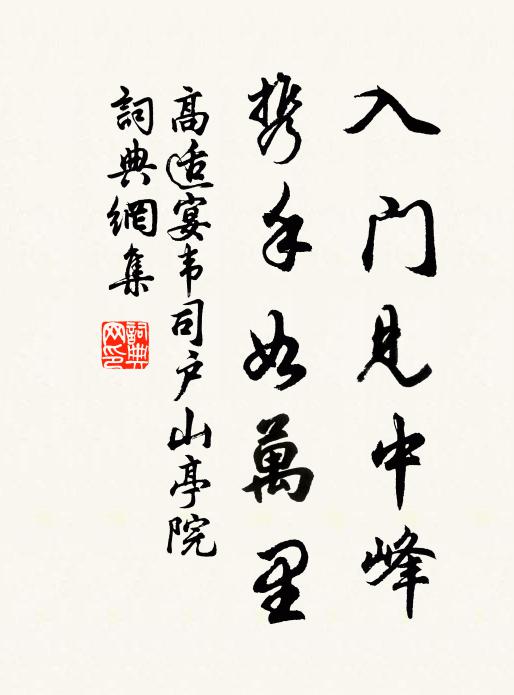 入门见中峰
携手如萬里
高适宴韦司户山亭院
詞典網集
詞典网印